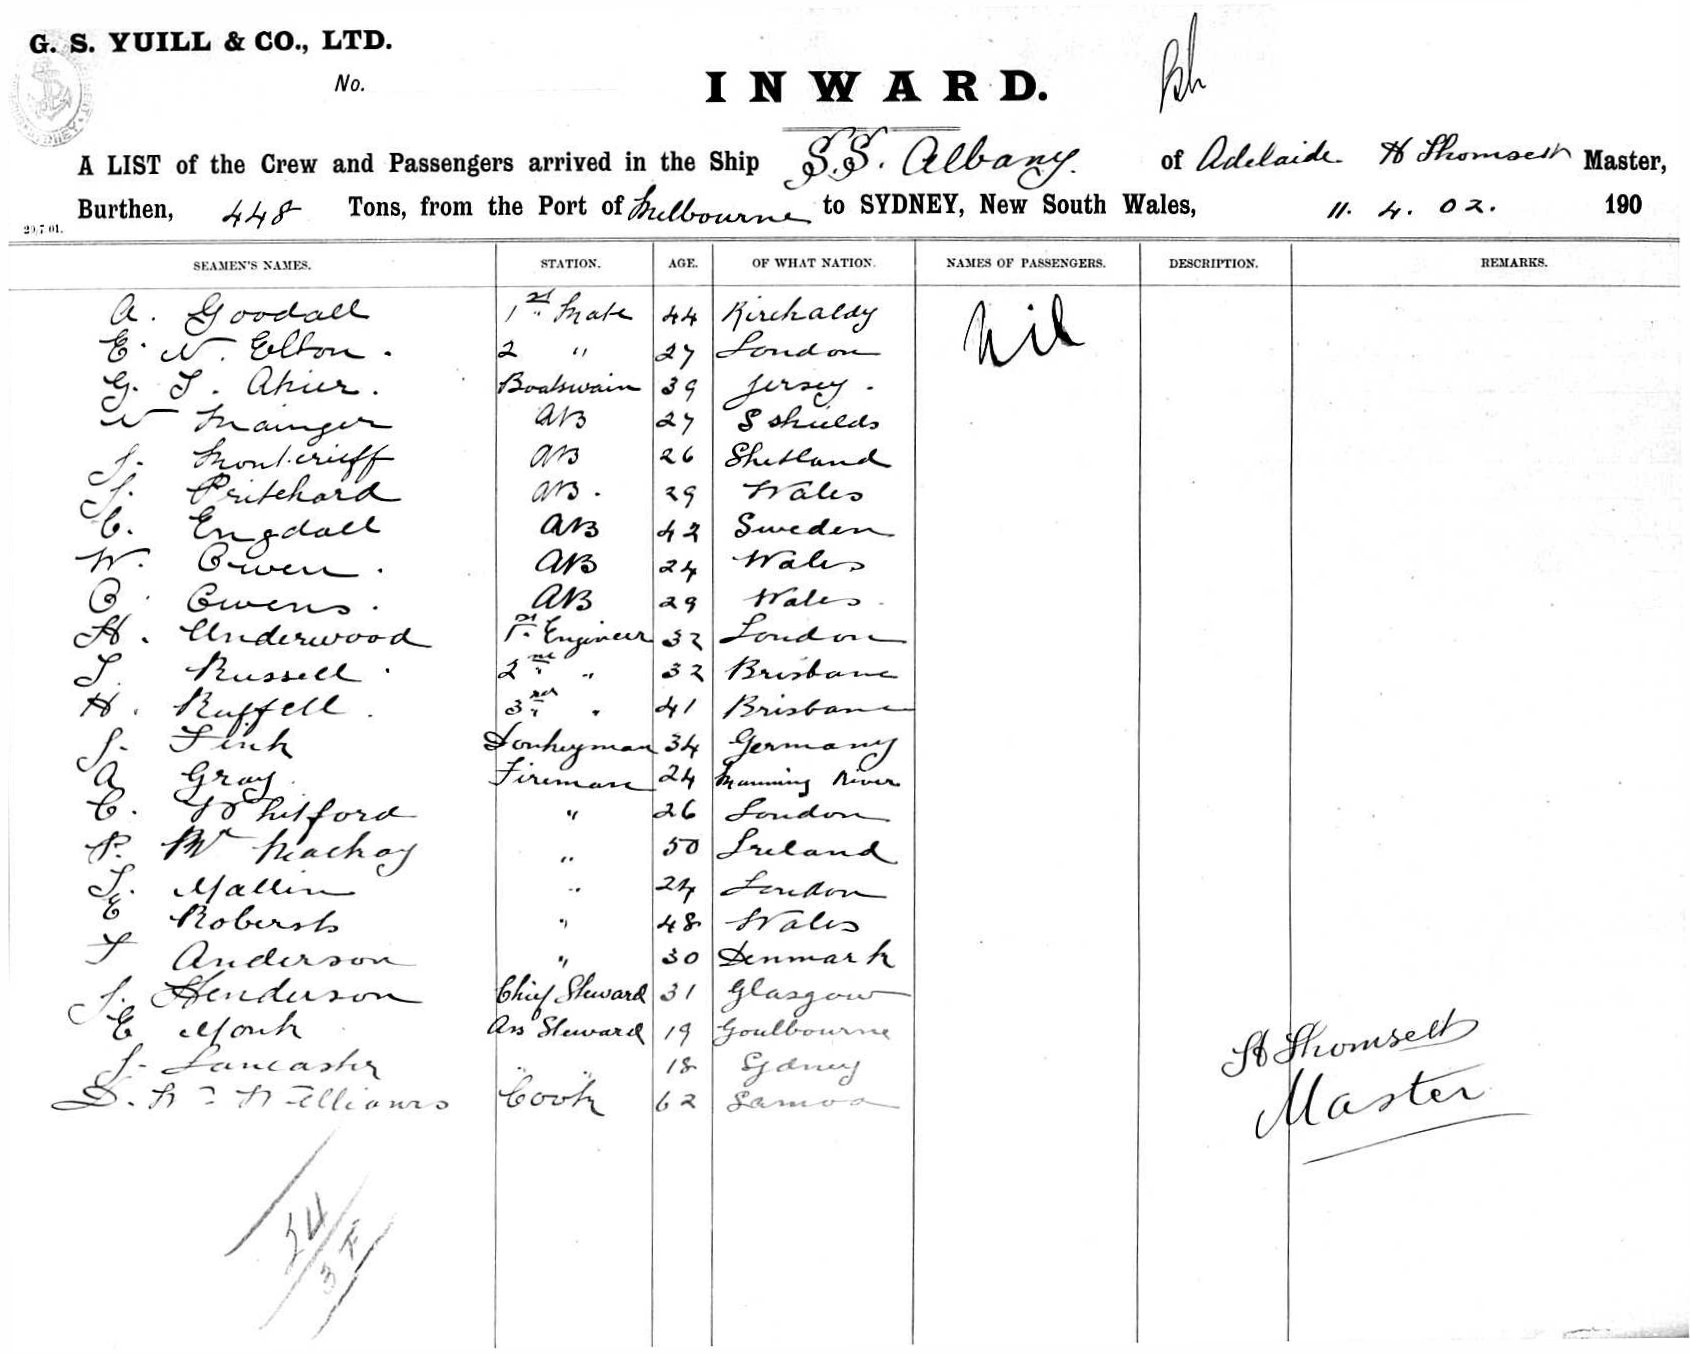 G. S. YUILL & CO., LTD.
No.
INWARD.
A LIST of the Crew and Passengers arrived in the Ship S.S. Albany. of Adelaide H Thomsett Master,
Burthen, 448 Tons, from the Port of Melbourne to SYDNEY, New South Wales, 11. 4. 02. 190
29.7.01.
SEAMEN'S NAMES. STATION. AGE. OF WHAT NATION. NAMES OF PASSENGERS. DESCRIPTION. REMARKS.
A. Goodall 1st Mate 44 Kirchaldy Nil
E. N. Elton. 2 " 27 London
G. T. Ahier. Boatswain 39 Jersey.
N Mainger AB 27 S Shields
J. Montcrieff AB 26 Shetland
J. Pritchard AB. 29 Wales
C. Engdall AB 42 Sweden
W. Owen. AB 24 Wales
O. Owens. AB 29 Wales.
H. Underwood 1st Engineer 32 London
T. Russell. 2nd " 32 Brisbane
H. Ruffell. 3rd " 41 Brisbane
J. Fink Donkeyman 34 Germany
A Gray. Fireman 24 Manning River
C. Whitford " 26 London
P. Mc Mackay " 50 Ireland
T. Mallin " 24 London
E Roberts " 48 Wales
T Anderson " 30 Denmark
J. Henderson Chief Steward 31 Glasgow
E Monk Ass Steward 19 Goulbourne
J. Lancaster " " 18 Sydney
D. W. Williams Cook 62 Samoa
H Thomsett
Master
24
3 F.